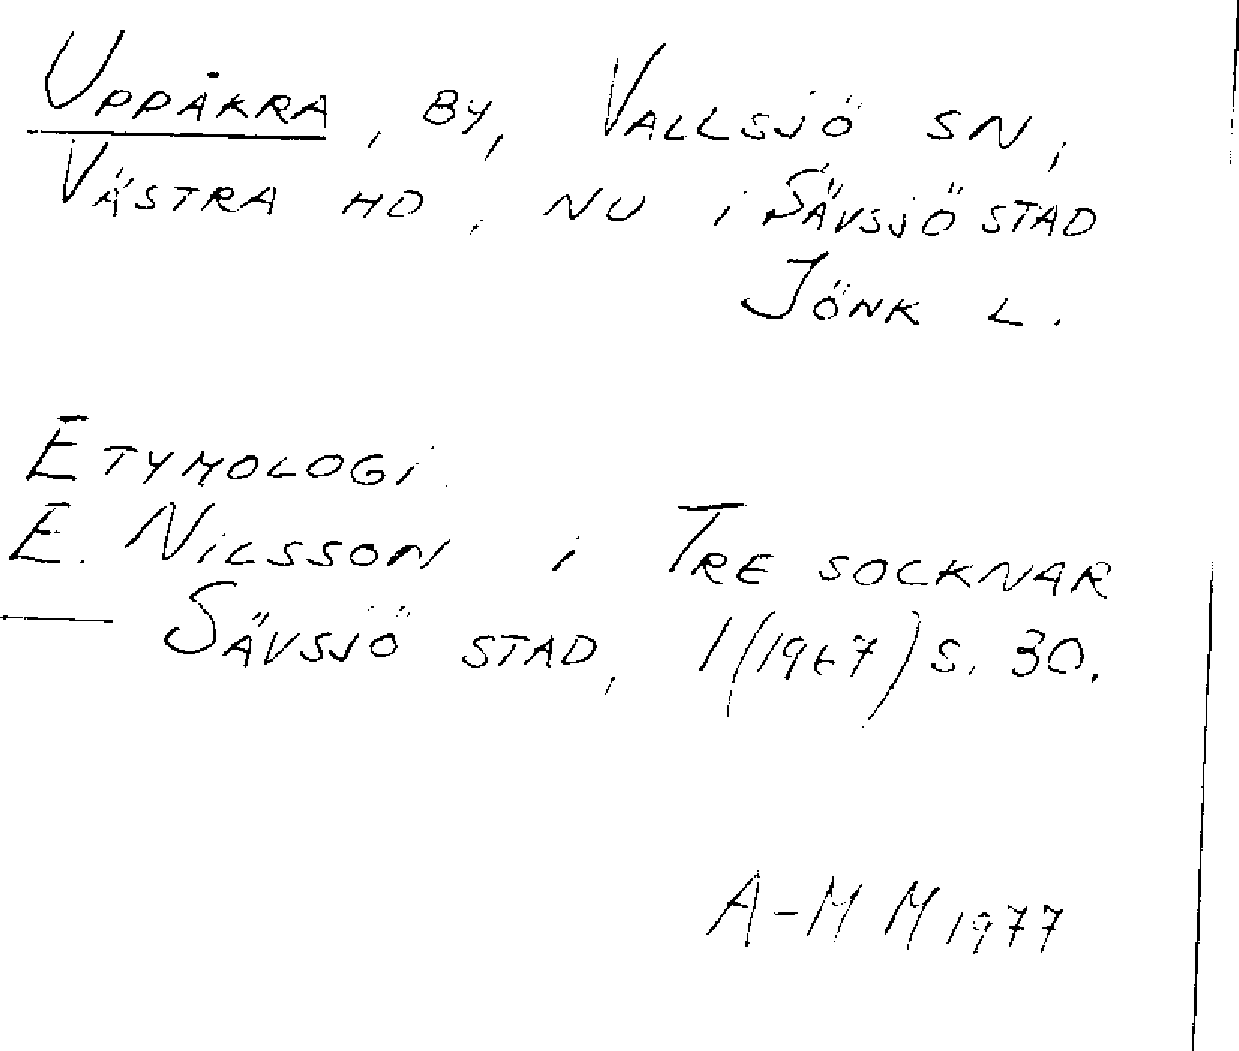 UPPÅKRA, BY, VALLSJÖ SN,
VÄSTRA HD, NU i SÄVSJÖ STAD
JÖNK L.
ETYMOLOGi.
E. NiLSSON i TRE SOCKNAR
— SÄVSJÖ STAD, 1(1967) S. 30.
A-M M 1977